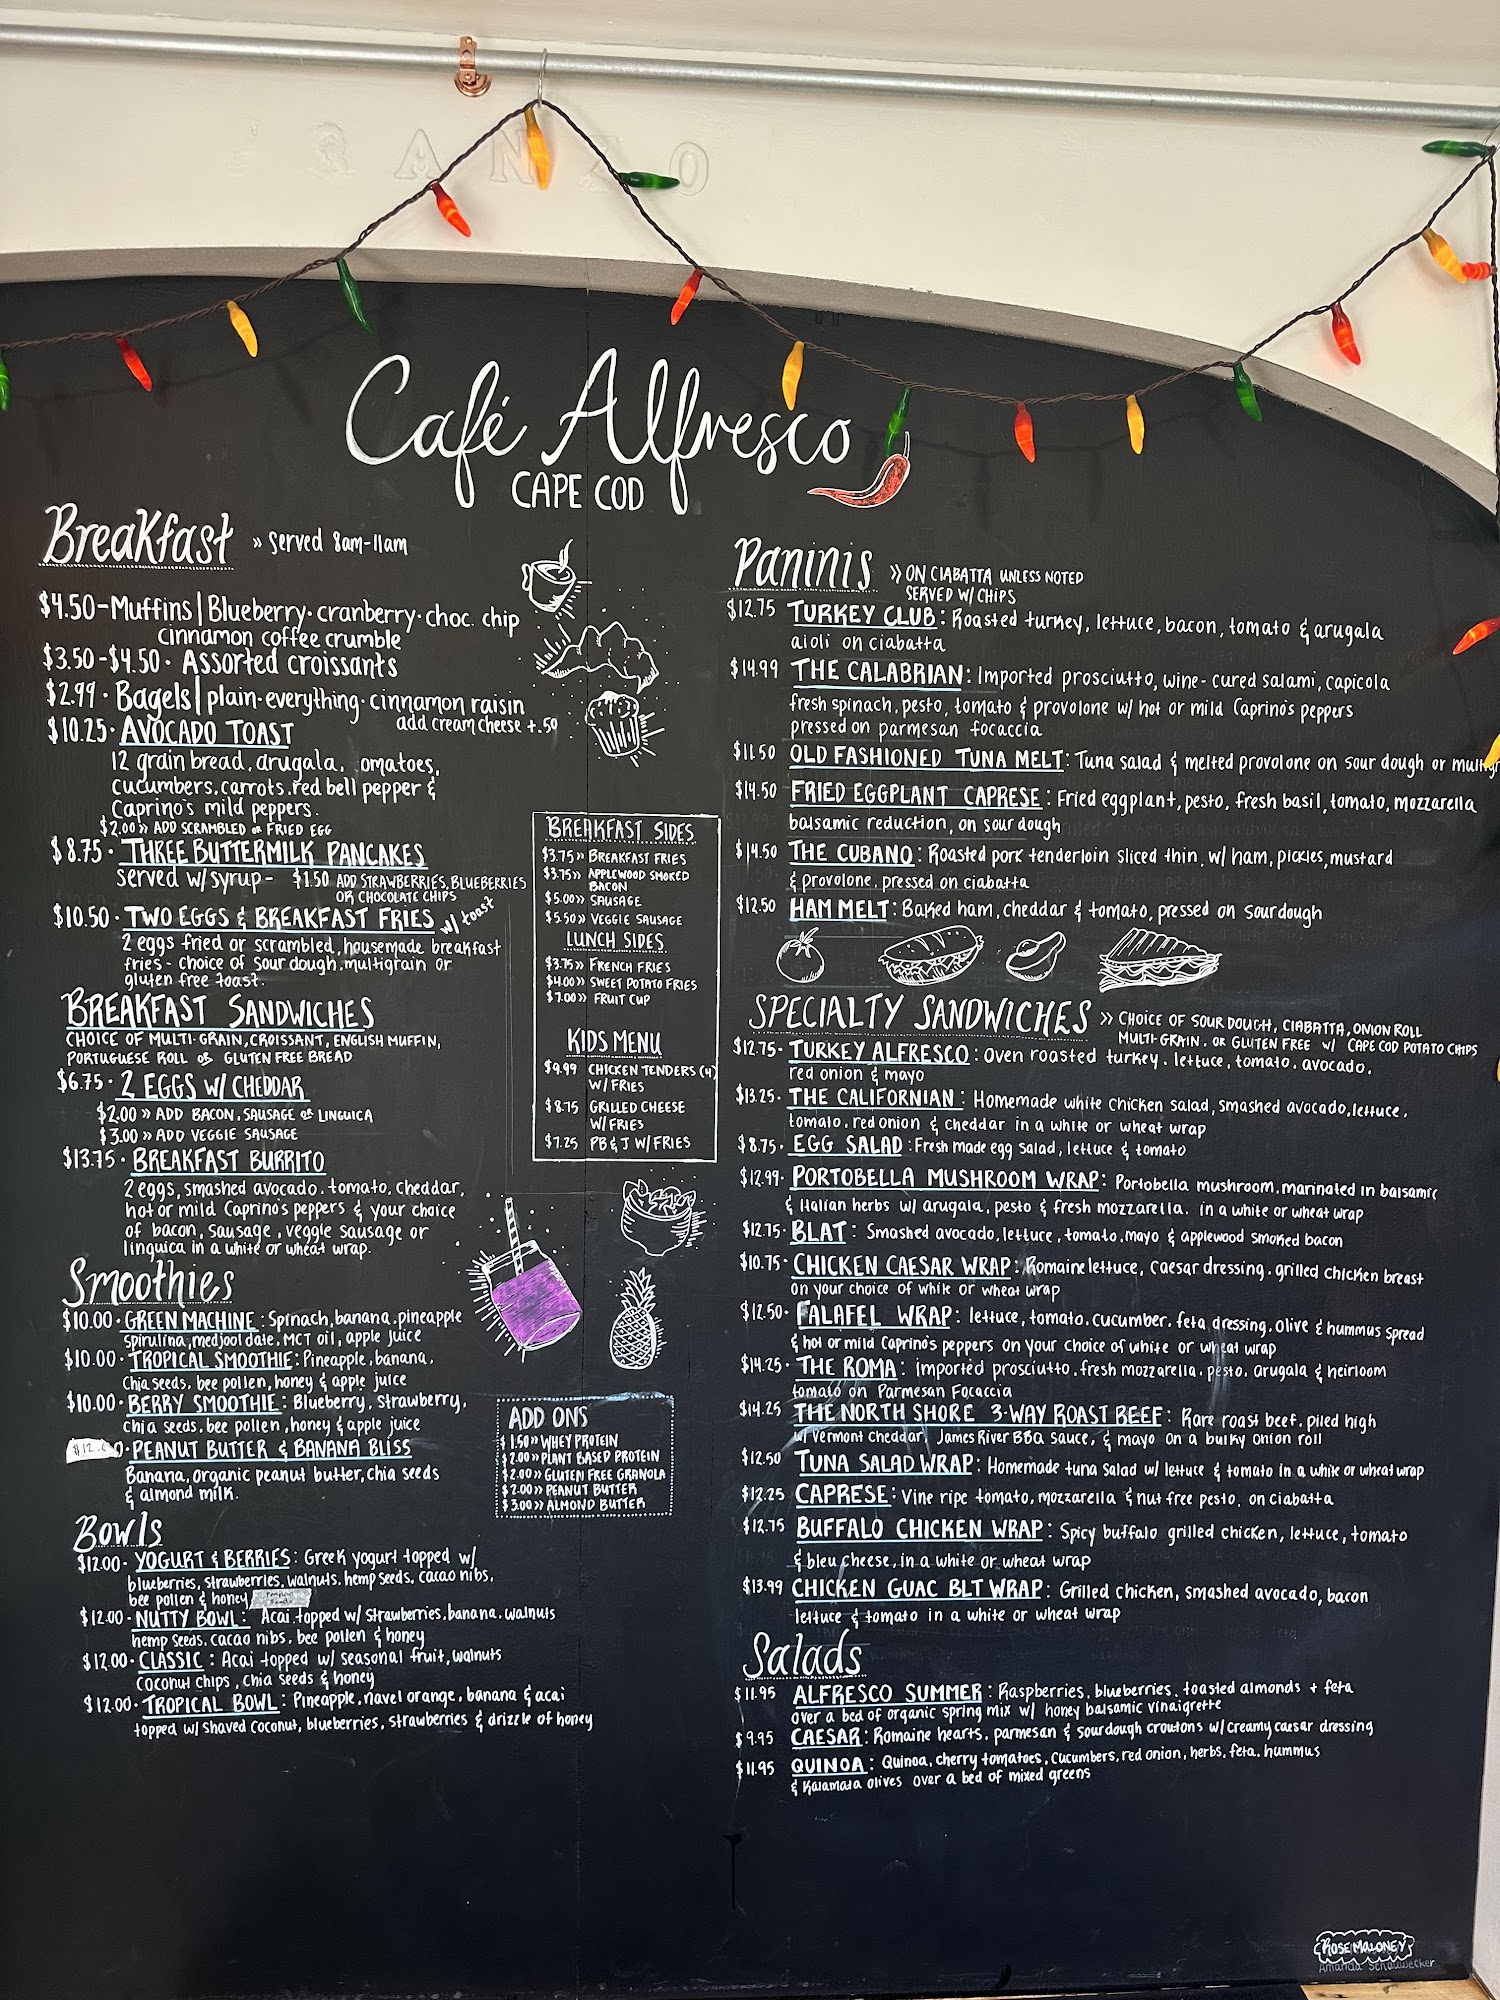 RANZO
Café Alfresco
CAPE COD
Breakfast » served 8am-11am
$4.50-Muffins | Blueberry · cranberry · choc. chip
cinnamon coffee crumble
$3.50-$4.50 · Assorted croissants
$2.99 · Bagels | plain · everything · cinnamon raisin
add cream cheese +.50
$10.25 · AVOCADO TOAST
12 grain bread, arugala, omatoes,
cucumbers, carrots, red bell pepper &
Caprino's mild peppers.
$2.00 » ADD SCRAMBLED or FRIED EGG
$8.75 · THREE BUTTERMILK PANCAKES
served w/syrup - $1.50 ADD STRAWBERRIES, BLUEBERRIES
OR CHOCOLATE CHIPS
$10.50 · TWO EGGS & BREAKFAST FRIES w/ toast
2 eggs fried or scrambled, housemade breakfast
fries - choice of sour dough, multigrain or
gluten free toast.
BREAKFAST SANDWICHES
CHOICE OF MULTI-GRAIN, CROISSANT, ENGLISH MUFFIN,
PORTUGUESE ROLL or GLUTEN FREE BREAD
$6.75 · 2 EGGS W/ CHEDDAR
$2.00 » ADD BACON, SAUSAGE or LINGUICA
$3.00 » ADD VEGGIE SAUSAGE
$13.75 · BREAKFAST BURRITO
2 eggs, smashed avocado, tomato, cheddar,
hot or mild Caprino's peppers & your choice
of bacon, sausage, veggie sausage or
linguica in a white or wheat wrap.
Smoothies
$10.00 · GREEN MACHINE: Spinach, banana, pineapple
spirulina, medjool date, MCT oil, apple juice
$10.00 · TROPICAL SMOOTHIE: Pineapple, banana,
Chia seeds, bee pollen, honey & apple juice
$10.00 · BERRY SMOOTHIE: Blueberry, strawberry,
chia seeds, bee pollen, honey & apple juice
$12.00 · PEANUT BUTTER & BANANA BLISS
Banana, organic peanut butter, chia seeds
& almond milk.
Bowls
$12.00 · YOGURT & BERRIES: Greek yogurt topped w/
blueberries, strawberries, walnuts, hemp seeds, cacao nibs,
bee pollen & honey
$12.00 · NUTTY BOWL: Acai topped w/ strawberries, banana, walnuts
hemp seeds, cacao nibs, bee pollen & honey
$12.00 · CLASSIC: Acai topped w/ seasonal fruit, walnuts
coconut chips, chia seeds & honey
$12.00 · TROPICAL BOWL: Pineapple, navel orange, banana & acai
topped w/ shaved coconut, blueberries, strawberries & drizzle of honey
BREAKFAST SIDES
$3.75 » BREAKFAST FRIES
$3.75 » APPLEWOOD SMOKED
BACON
$5.00 » SAUSAGE
$5.50 » VEGGIE SAUSAGE
LUNCH SIDES
$3.75 » FRENCH FRIES
$4.00 » SWEET POTATO FRIES
$7.00 » FRUIT CUP
KIDS MENU
$9.99 CHICKEN TENDERS (4)
W/FRIES
$8.75 GRILLED CHEESE
W/FRIES
$7.25 PB & J W/FRIES
ADD ONS
$1.50 » WHEY PROTEIN
$2.00 » PLANT BASED PROTEIN
$2.00 » GLUTEN FREE GRANOLA
$2.00 » PEANUT BUTTER
$3.00 » ALMOND BUTTER
Paninis » ON CIABATTA UNLESS NOTED
SERVED W/ CHIPS
$12.75 TURKEY CLUB: Roasted turkey, lettuce, bacon, tomato & arugala
aioli on ciabatta
$14.99 THE CALABRIAN: Imported prosciutto, wine-cured salami, capicola
fresh spinach, pesto, tomato & provolone w/ hot or mild Caprino's peppers
pressed on parmesan focaccia
$11.50 OLD FASHIONED TUNA MELT: Tuna salad & melted provolone on sour dough or multigr
$14.50 FRIED EGGPLANT CAPRESE: Fried eggplant, pesto, fresh basil, tomato, mozzarella
balsamic reduction, on sour dough
$14.50 THE CUBANO: Roasted pork tenderloin sliced thin, w/ ham, pickles, mustard
& provolone, pressed on ciabatta
$12.50 HAM MELT: Baked ham, cheddar & tomato, pressed on sourdough
SPECIALTY SANDWICHES » CHOICE OF SOUR DOUGH, CIABATTA, ONION ROLL
MULTI-GRAIN, OR GLUTEN FREE W/ CAPE COD POTATO CHIPS
$12.75 · TURKEY ALFRESCO: Oven roasted turkey, lettuce, tomato, avocado,
red onion & mayo
$13.25 · THE CALIFORNIAN: Homemade white chicken salad, smashed avocado, lettuce,
tomato, red onion & cheddar in a white or wheat wrap
$8.75 · EGG SALAD: Fresh made egg salad, lettuce & tomato
$12.99 · PORTOBELLA MUSHROOM WRAP: Portobella mushroom, marinated in balsamic
& Italian herbs w/ arugala, pesto & fresh mozzarella, in a white or wheat wrap
$12.75 · BLAT: Smashed avocado, lettuce, tomato, mayo & applewood smoked bacon
$10.75 · CHICKEN CAESAR WRAP: Romaine lettuce, Caesar dressing, grilled chicken breast
on your choice of white or wheat wrap
$12.50 · FALAFEL WRAP: lettuce, tomato, cucumber, feta dressing, olive & hummus spread
& hot or mild Caprino's peppers on your choice of white or wheat wrap
$14.25 · THE ROMA: imported prosciutto, fresh mozzarella, pesto, arugala & heirloom
tomato on Parmesan Focaccia
$14.25 THE NORTH SHORE 3-WAY ROAST BEEF: Rare roast beef, piled high
w/ Vermont Cheddar, James River BBQ sauce, & mayo on a bulky onion roll
$12.50 TUNA SALAD WRAP: Homemade tuna salad w/ lettuce & tomato in a white or wheat wrap
$12.25 CAPRESE: Vine ripe tomato, mozzarella & nut free pesto, on ciabatta
$12.75 BUFFALO CHICKEN WRAP: Spicy buffalo grilled chicken, lettuce, tomato
& bleu cheese, in a white or wheat wrap
$13.99 CHICKEN GUAC BLT WRAP: Grilled chicken, smashed avocado, bacon
lettuce & tomato in a white or wheat wrap
Salads
$11.95 ALFRESCO SUMMER: Raspberries, blueberries, toasted almonds + feta
over a bed of organic spring mix w/ honey balsamic vinaigrette
$9.95 CAESAR: Romaine hearts, parmesan & sourdough croutons w/ creamy caesar dressing
$11.95 QUINOA: Quinoa, cherry tomatoes, cucumbers, red onion, herbs, feta, hummus
& Kalamata olives over a bed of mixed greens
ROSE MALONEY
Amanda Schauwecker